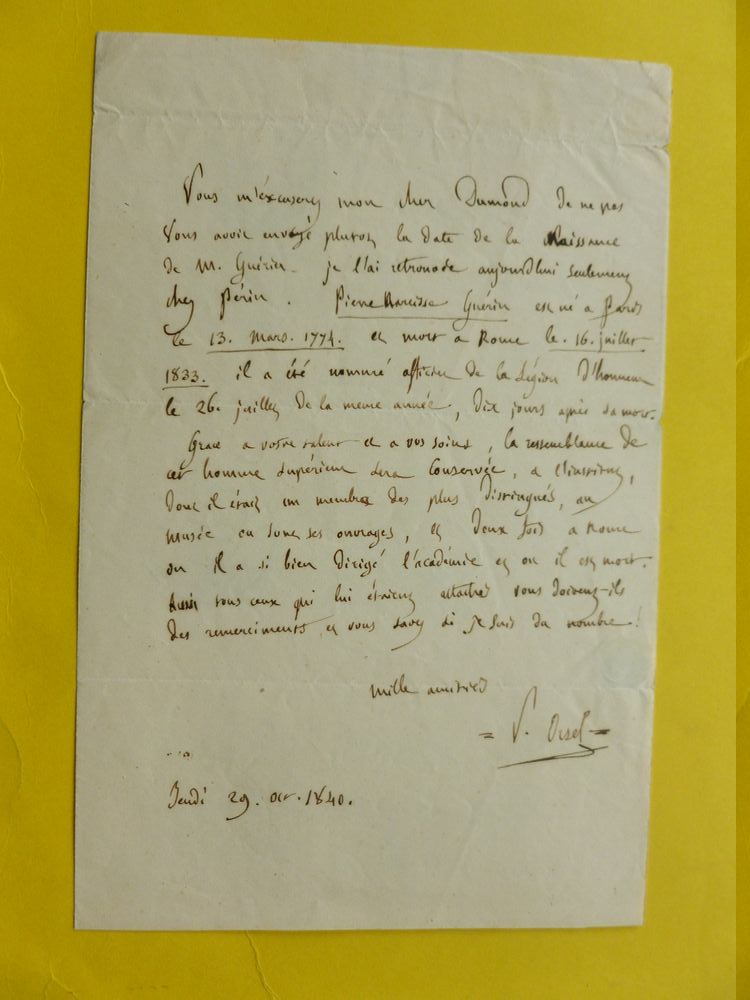 Vous m'éxcuserez mon cher Dumond de ne pas
Vous avoir envoyé plutot la date de la Naissance
de M. Guérin. je l'ai retrouvée aujourd'hui seulement
chez Périn. Pierre Narcisse Guérin est né a Paris
le 13. Mars. 1774. et mort a Rome le. 16. juillet
1833. il a été nommé officier de la Légion d'honneur
le 26. juillet de la meme année, dix jours après sa mort.
Grace a votre talent et a vos soins, la ressemblance de
cet homme supérieur sera conservée, a l'institut,
dont il était un membre des plus distingués, au
musée ou sont ses ouvrages, et deux fois a Rome
ou il a si bien dirigé l'académie et ou il est mort.
Aussi tous ceux qui lui étaient attachés vous doivent-ils
des remerciments, et vous savez si je suis du nombre!
Mille amitiés
= V. Orsel =
Jeudi 29. oct. 1840.